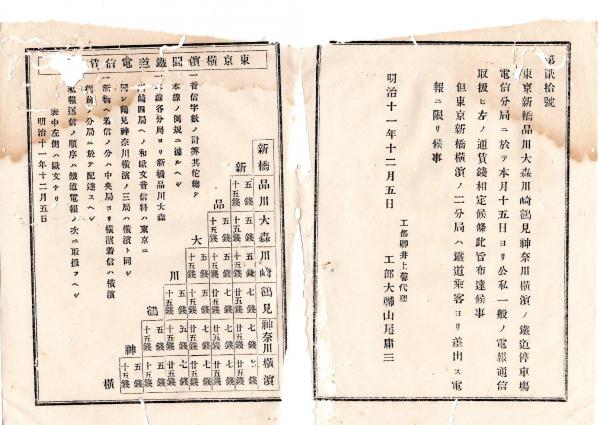 第貳拾號
東京新橋品川大森川崎鶴見神奈川横濱ノ鐵道停車場
電信分局ニ於テ本月十五日ヨリ公私一般ノ電報通信
取扱ヒ方ノ通賃錢相定候條此旨布達候事
但東京新橋横濱ノ二分局ハ鐵道乘客ヨリ差出ス電
報ニ限リ候事
明治十一年十二月五日
工部卿井上馨代理
工部大輔山尾庸三
東京横濱間鐵道電信賃
新橋 品川 大森 川崎 鶴見 神奈川 横濱
新 五錢 十五錢 五錢 十五錢 五錢 十五錢 七錢 廿五錢 七錢 廿五錢 七錢 廿五錢
品
大
川
鶴
神 五錢 十五錢
横
一音信字數ノ計算其佗總テ
本線ノ例規ニ據ルヘシ
本線各分局ヨリ新橋品川大森
川崎四局ヘノ和歐文音信料ハ東京ニ
同シ鶴見神奈川横濱ノ三局ハ横濱ト同シ
新橋ヘ着信ノ分ハ中央局ヨリ横濱着信ハ横濱
分局ニ於テ配達スヘシ
電報送信ノ順序ハ鐵道電報ノ次ニ取扱フヘシ
表中左側ハ歐文ナリ
明治十一年十二月五日